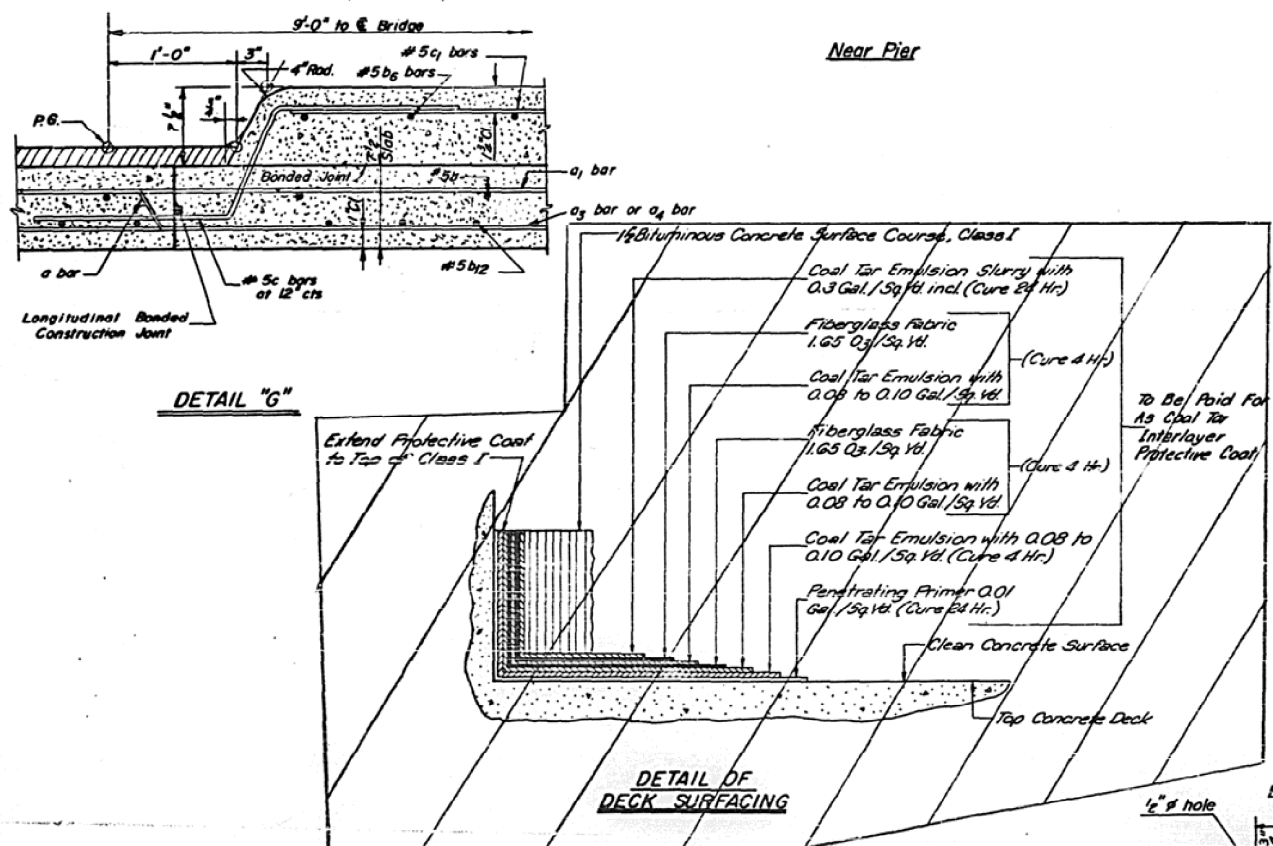 9'-0" to ℄ Bridge
1'-0"
3"
# 5c1 bars
4" Rad.
# 5b6 bars
Near Pier
P.G.
7 1/2"
7 1/2"
Slab
1 1/2" Cl.
Bonded Joint
#5b
a1 bar
1" Cl.
a3 bar or a4 bar
a bar
# 5c bars
at 12" cts
#5b12
Longitudinal Bonded
Construction Joint
DETAIL "G"
1 1/2" Bituminous Concrete Surface Course, Class I
Coal Tar Emulsion Slurry with
0.3 Gal./Sq.Yd. incl. (Cure 24 Hr.)
Fiberglass Fabric
1.65 Oz./Sq.Yd.
(Cure 4 Hr.)
Coal Tar Emulsion with
0.08 to 0.10 Gal./Sq.Yd.
Fiberglass Fabric
1.65 Oz./Sq.Yd.
(Cure 4 Hr.)
Coal Tar Emulsion with
0.08 to 0.10 Gal./Sq.Yd.
Coal Tar Emulsion with 0.08 to
0.10 Gal./Sq.Yd. (Cure 4 Hr.)
Penetrating Primer 0.01
Gal./Sq.Yd. (Cure 24 Hr.)
To Be Paid For
As Coal Tar
Interlayer
Protective Coat
Extend Protective Coat
to Top of Class I
Clean Concrete Surface
Top Concrete Deck
DETAIL OF
DECK SURFACING
1/2" ø hole
3"